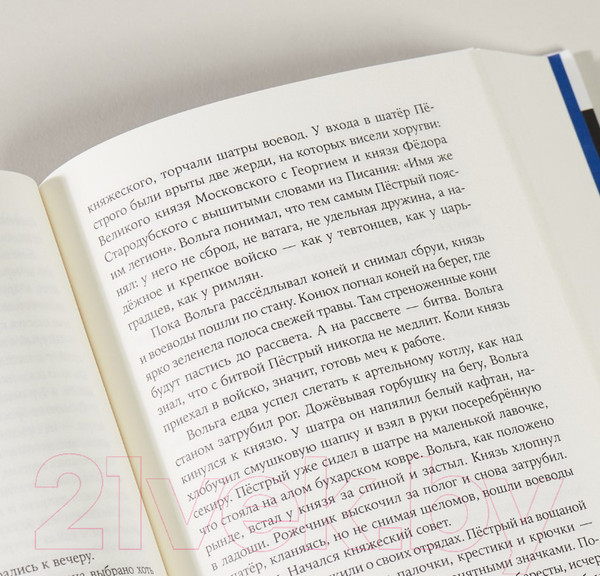 княжеского, торчали шатры воевод. У входа в шатёр Пё-
строго были врыты две жерди, на которых висели хоругви:
Великого князя Московского с Георгием и князя Фёдора
Стародубского с вышитыми словами из Писания: «Имя же
им легион». Вольга понимал, что тем самым Пёстрый пояс-
нял: у него не сброд, не ватага, не удельная дружина, а на-
дёжное и крепкое войско — как у тевтонцев, как у царь-
градцев, как у римлян.
Пока Вольга рассёдлывал коней и снимал сбруи, князь
и воеводы пошли по стану. Конюх погнал коней на берег, где
ярко зеленела полоса свежей травы. Там стреноженные кони
будут пастись до рассвета. А на рассвете — битва. Вольга
знал, что с битвой Пёстрый никогда не медлит. Коли князь
приехал в войско, значит, готовь меч к работе.
Вольга едва успел слетать к артельному котлу, как над
станом затрубил рог. Дожёвывая горбушку на бегу, Вольга
кинулся к князю. У шатра он напялил белый кафтан, на-
хлобучил смушковую шапку и взял в руки посеребрённую
секиру. Пёстрый уже сидел в шатре на маленькой лавочке,
что стояла на алом бухарском ковре. Вольга, как положено
рынде, встал у князя за спиной и застыл. Князь хлопнул
в ладоши. Рожечник выскочил за полог и снова затрубил.
шатёр, кланяясь, но не снимая шеломов, вошли воеводы
Начался княжеский совет.
о своих отрядах. Пёстрый на вощаной
палочки, крестики и крючки —
значками. По-
исчер
рались к вечеру.
выбрано хоть
21vek.by